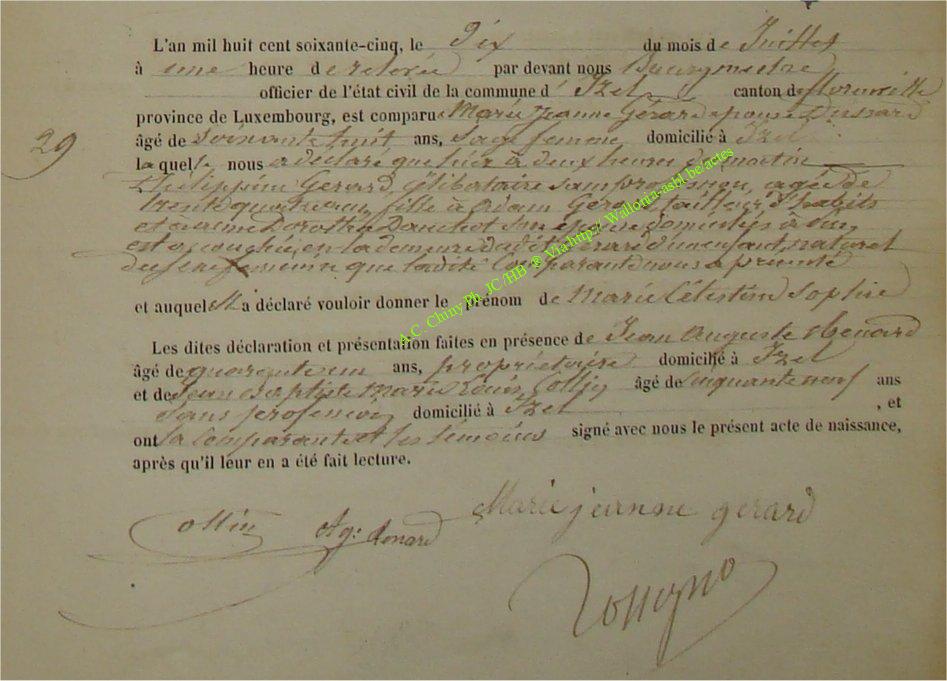 L'an mil huit cent soixante-cinq, le Dix du mois de Juillet
à une heure de relevée par devant nous Bourgmestre
officier de l'état civil de la commune d' Izel canton de florenville
province de Luxembourg, est comparu Marie Jeanne Gérard epouse
29
âgé de Soixante huit ans, Sage femme domicilié à Izel
laquelle nous a déclaré que hier à deux heures du matin
Philippine Gerard, célibataire sans profession, agée de
trente quatre ans, fille à Gerard, tailleur d'habits
et à son épouse domiciliés à
est accouchée en la demeure dudit Gerard d'un enfant naturel
du sexe feminin que ladite Comparante nous a présenté
et auquel elle a déclaré vouloir donner le prénom de Marie Célestine Sophie
Les dites déclaration et présentation faites en présence de Jean Auguste Henard
âgé de quarante un ans, propriétaire domicilié à Izel
et de Jean Baptiste Marie Louis Collin âgé de Cinquante neuf ans
Sans profession domicilié à Izel , et
ont la Comparante et les témoins signé avec nous le présent acte de naissance,
après qu'il leur en a été fait lecture.
Marie jeanne gerard
Collin Ag: henard
A.C. Chiny Ph. JC /HB ® Via http:// Wallonia-asbl.be/actes